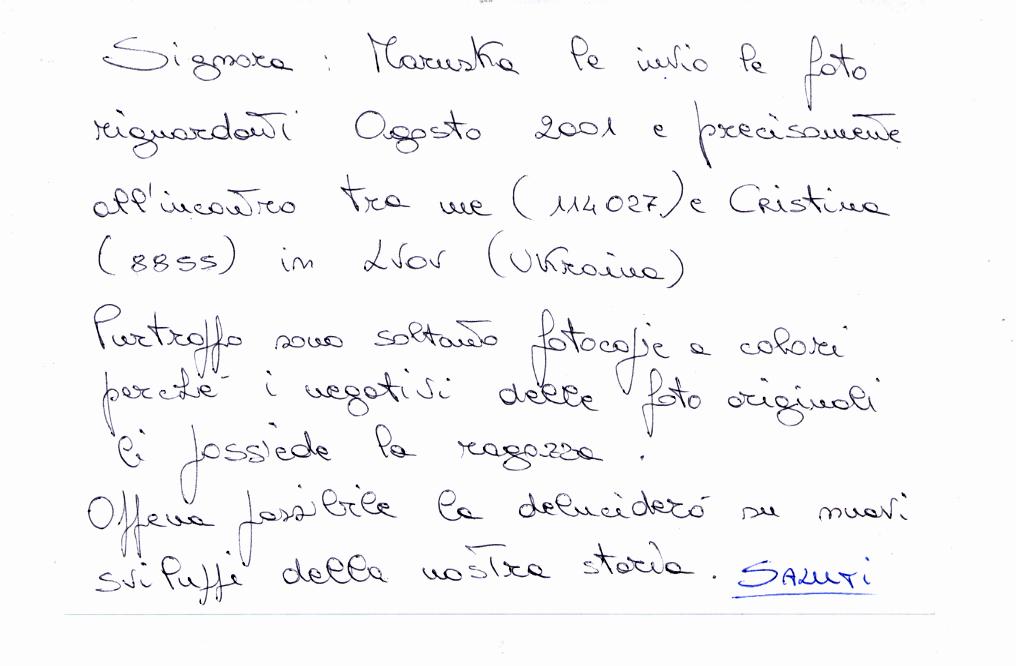 Signora : Maruska le invio le foto
riguardanti Agosto 2001 e precisamente
all'incontro tra me (114027) e Cristina
(8855) in Lvov (Ukraina)
Purtroppo sono soltanto fotocopie a colori
perché i negativi delle foto originali
li possiede la ragazza .
Appena possibile la deluciderò su nuovi
sviluppi della nostra storia. SALUTI